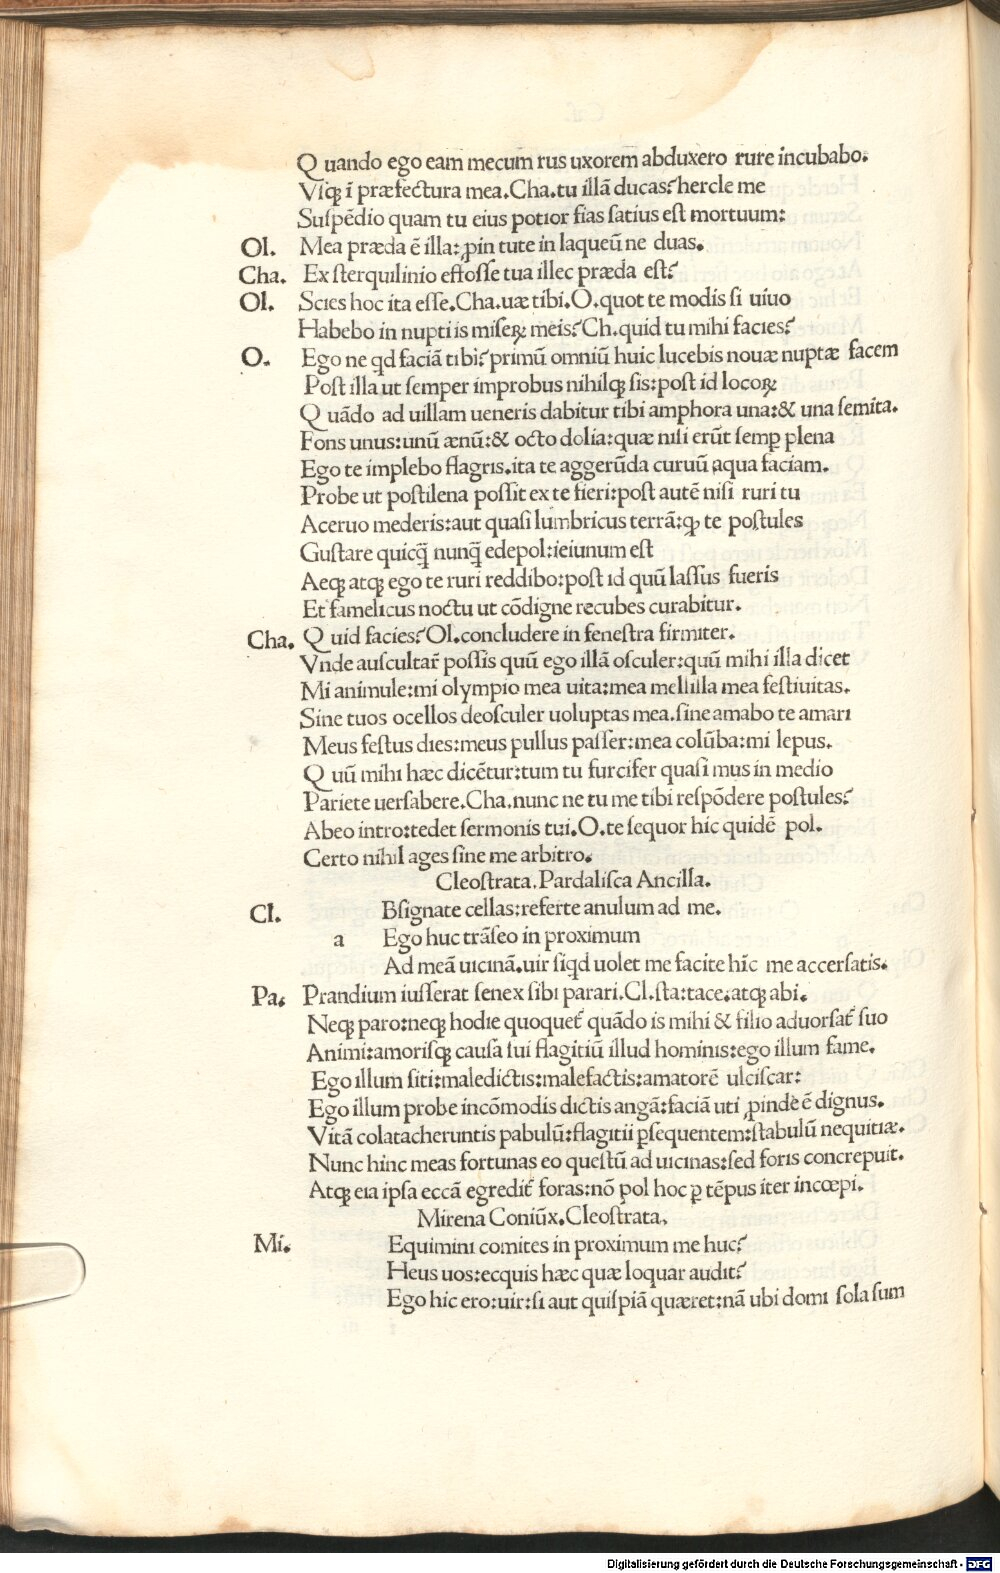 Q uando ego eam mecum rus uxorem abduxero rure incubabo.
Vſqꝫ ī præfectura mea.Cha.tu illā ducas?hercle me
Suſpēdio quam tu eius potior fias ſatius eſt mortuum:
Ol. Mea præda ē illa:ꝓin tute in laqueū ne duas.
Cha. Ex ſterquilinio effoſſe tua illec præda eſt?
Ol. Scies hoc ita eſſe.Cha.uæ tibi.O.quot te modis ſi uiuo
Habebo in nuptiis miſeꝝ meis?Ch.quid tu mihi facies?
O. Ego ne qd faciā tibi?primū omniū huic lucebis nouæ nuptæ facem
Poſt illa ut ſemper improbus nihilqꝫ ſis:poſt id locoꝝ
Q uādo ad uillam ueneris dabitur tibi amphora una:& una ſemita.
Fons unus:unū ænū:& octo dolia:quæ niſi erūt ſemꝑ plena
Ego te implebo flagris.ita te aggerūda curuū aqua faciam.
Probe ut poſtilena poſſit ex te fieri:poſt autē niſi ruri tu
Aceruo mederis:aut quaſi lumbricus terrā:ꝙ te poſtules
Guſtare quicq̄ nunq̄ edepol:ieiunum eſt
Aeqꝫ atqꝫ ego te ruri reddibo:poſt id quū laſſus fueris
Et famelicus noctu ut cōdigne recubes curabitur.
Cha. Q uid facies?Ol.concludere in feneſtra firmiter.
Vnde auſcultar̄ poſſis quū ego illā oſculer:quū mihi illa dicet
Mi animule:mi olympio mea uita:mea mellilla mea feſtiuitas.
Sine tuos ocellos deoſculer uoluptas mea.ſine amabo te amari
Meus feſtus dies:meus pullus paſſer:mea colūba:mi lepus.
Q uū mihi hæc dicētur:tum tu furcifer quaſi mus in medio
Pariete uerſabere.Cha.nunc ne tu me tibi reſpōdere poſtules?
Abeo intro:tedet ſermonis tui.O.te ſequor hic quidē pol.
Certo nihil ages ſine me arbitro.
Cleoſtrata.Pardaliſca Ancilla.
Cl. Bſignate cellas:referte anulum ad me.
a Ego huc trāſeo in proximum
Ad meā uicinā.uir ſiqd uolet me facite hīc me accerſatis.
Pa. Prandium iuſſerat ſenex ſibi parari.Cl.ſta:tace.atqꝫ abi.
Neqꝫ paro:neqꝫ hodie quoquet̄ quādo is mihi & filio aduorſat̄ ſuo
Animi:amoriſqꝫ cauſa ſui flagitiū illud hominis:ego illum fame.
Ego illum ſiti:maledictis:malefactis:amatorē ulciſcar:
Ego illum probe incōmodis dictis angā:faciā uti ꝓinde ē dignus.
Vitā colatacheruntis pabulū:flagitii ꝑſequentem:ſtabulū nequitiæ.
Nunc hinc meas fortunas eo queſtū ad uicinas:ſed foris concrepuit.
Atqꝫ eia ipſa eccā egredit̄ foras:nō pol hoc ꝑ tēpus iter incœpi.
Mirena Coniūx.Cleoſtrata.
Mi. Equimini comites in proximum me huc?
Heus uos:ecquis hæc quæ loquar audit?
Ego hic ero:uir:ſi aut quiſpiā quæret:nā ubi domi ſola ſum
Digitalisierung gefördert durch die Deutsche Forschungsgemeinschaft - DFG